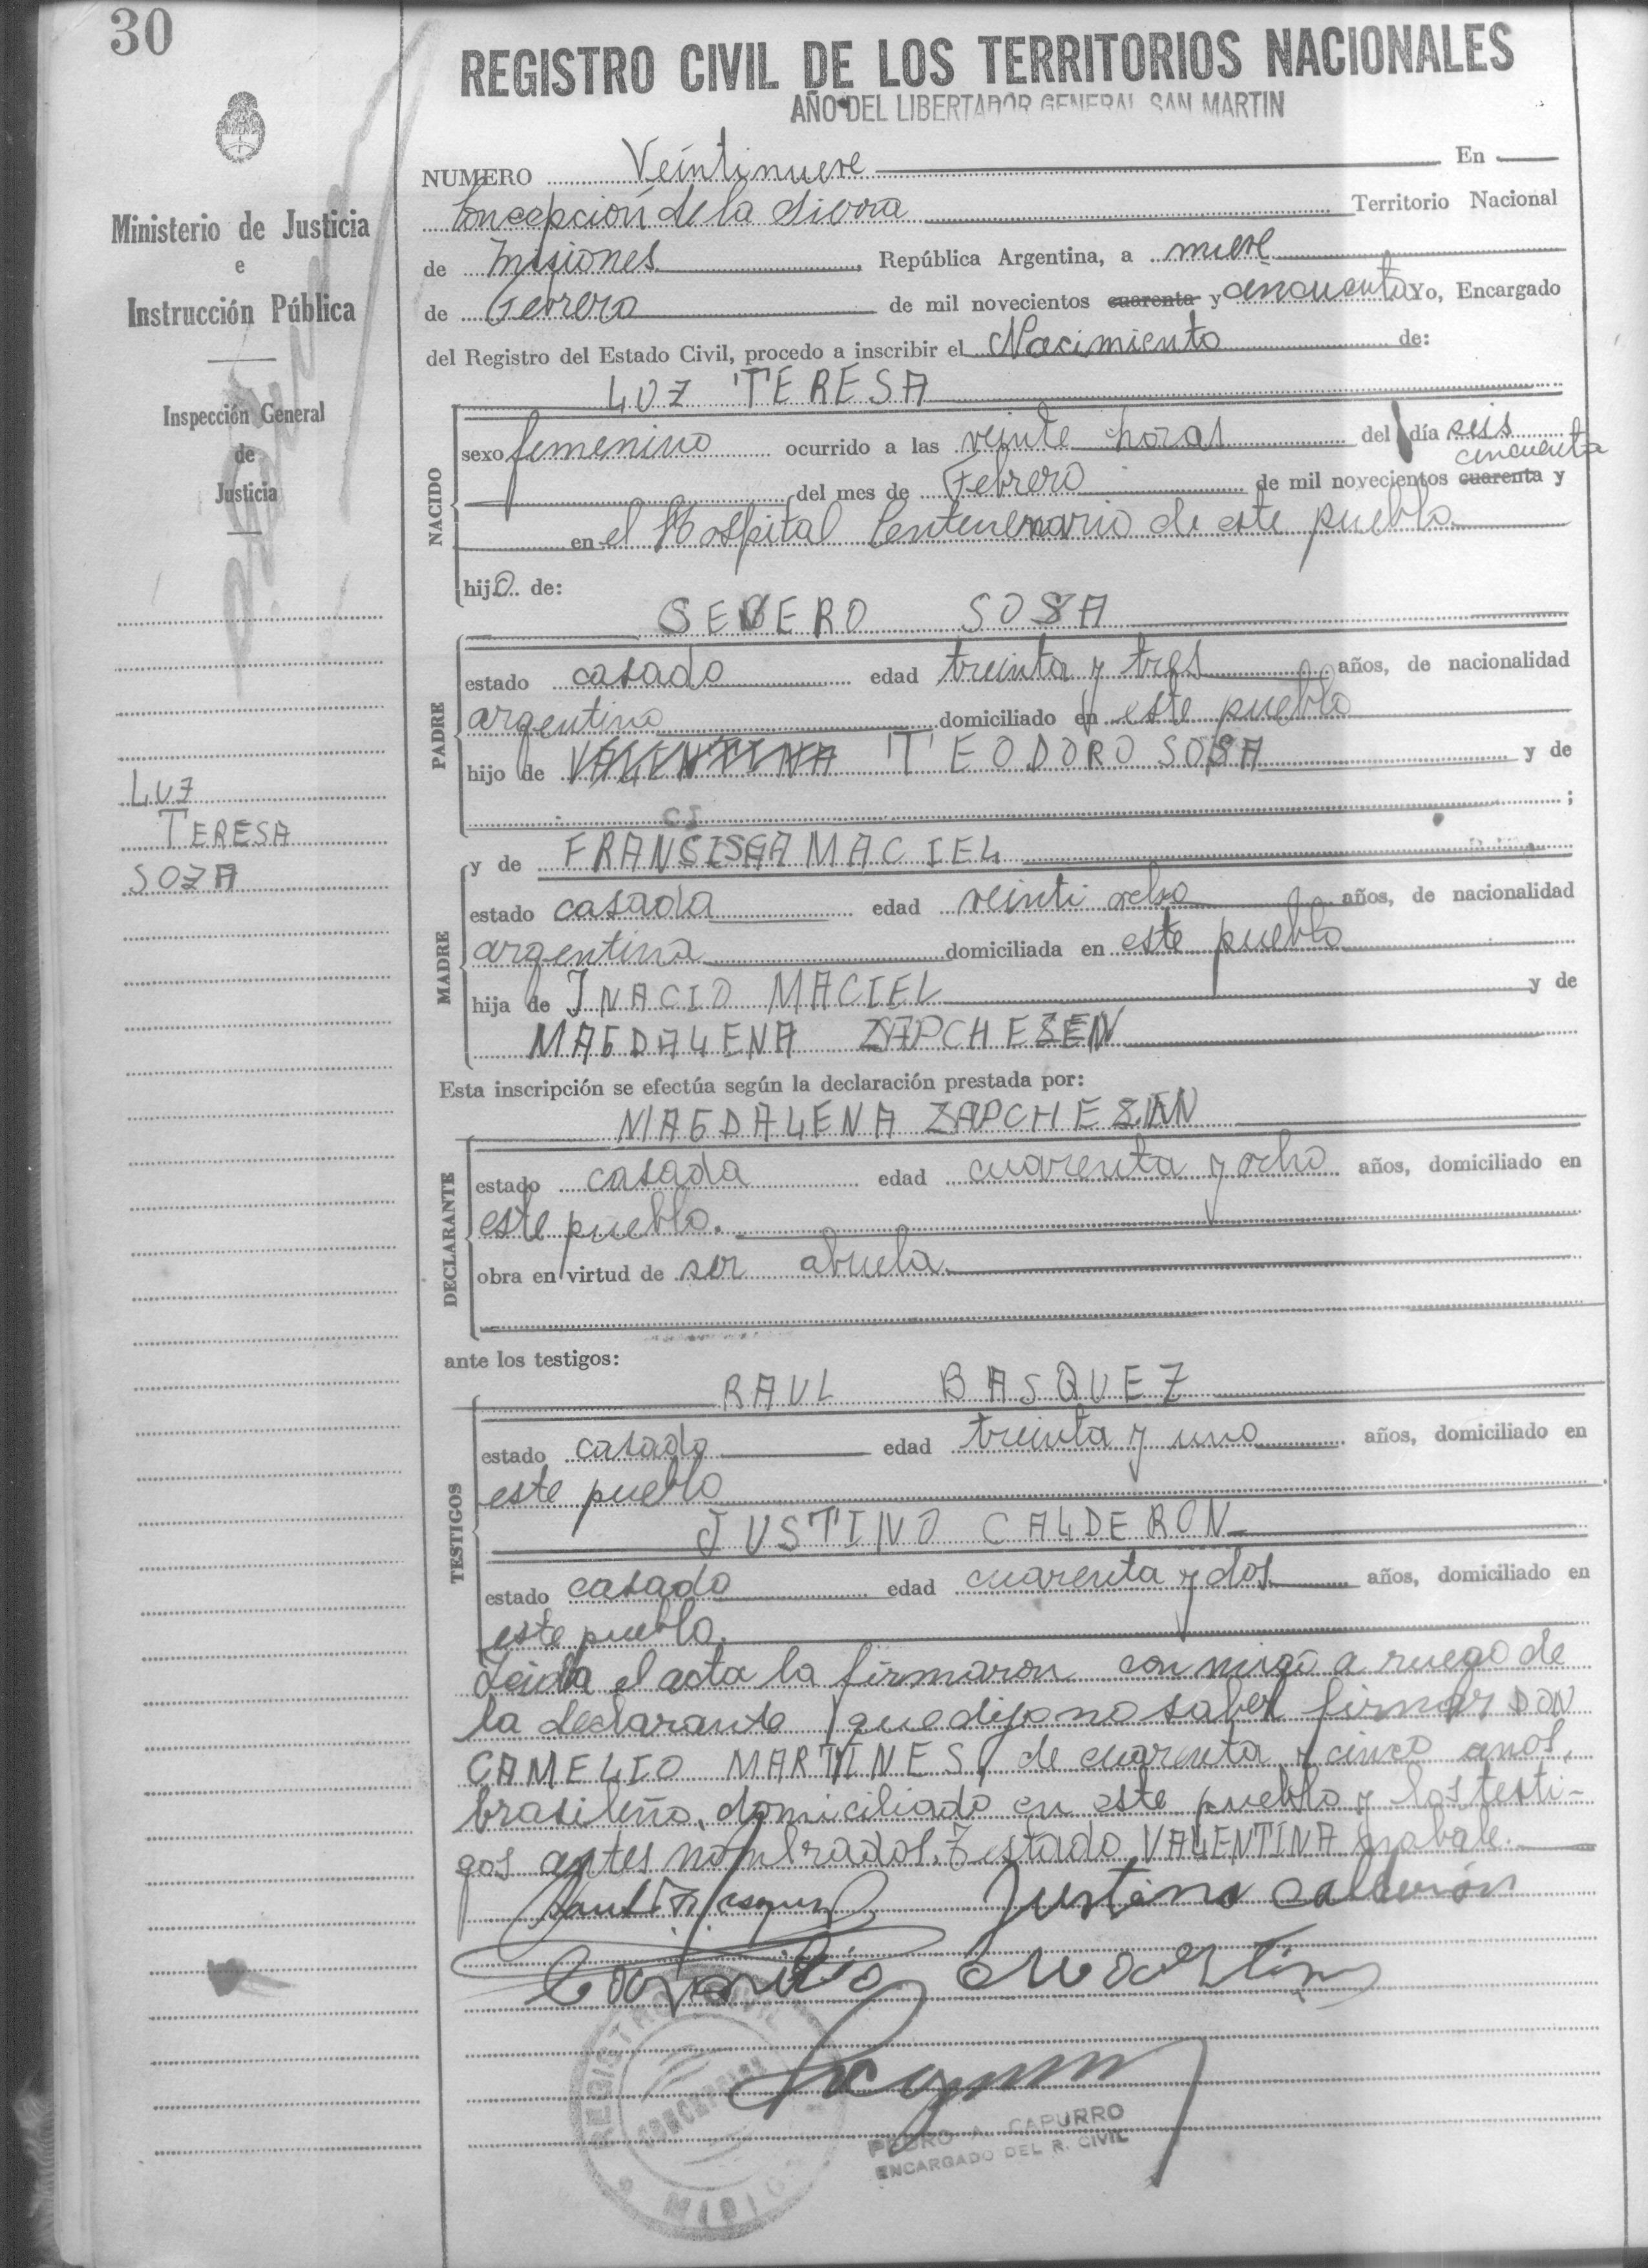 30
REGISTRO CIVIL DE LOS TERRITORIOS NACIONALES
AÑO DEL LIBERTADOR GENERAL SAN MARTIN
Ministerio de Justicia
e
Instrucción Pública
Inspección General
de
Justicia
LUZ
TERESA
SOZA
NUMERO Veintinueve En
Concepción de la Sierra Territorio Nacional
de Misiones, República Argentina, a nueve
de Febrero de mil novecientos cuarenta y cincuenta Yo, Encargado
del Registro del Estado Civil, procedo a inscribir el Nacimiento de:
LUZ TERESA
NACIDO
sexo femenino ocurrido a las veinte horas del día seis
cincuenta
del mes de Febrero de mil novecientos cuarenta y
en el Hospital Centenario de este pueblo
hijo de:
SEVERO SOSA
PADRE
estado casado edad treinta y tres años, de nacionalidad
argentina domiciliado en este pueblo
hijo de VALENTINA TEODORO SOSA y de
;
MADRE
y de FRANCISCA MACIEL
estado casada edad veinti ocho años, de nacionalidad
argentina domiciliada en este pueblo
hija de INACIO MACIEL y de
MAGDALENA ZAPCHEZEN
Esta inscripción se efectúa según la declaración prestada por:
MAGDALENA ZAPCHEZEN
DECLARANTE
estado casada edad cuarenta y ocho años, domiciliado en
este pueblo.
obra en virtud de ser abuela.
ante los testigos:
TESTIGOS
RAUL BASQUEZ
estado casado edad treinta y uno años, domiciliado en
este pueblo
JUSTINO CALDERON
estado casado edad cuarenta y dos años, domiciliado en
este pueblo.
Leida el acta la firmaron con migo a ruego de
la declarante que dijo no saber firmar DON
CAMELIO MARTINES, de cuarenta y cinco años,
brasileño, domiciliado en este pueblo y los testi-
gos antes nombrados. Testado VALENTINA no vale.
Justino Calderón
REGISTRO CIVIL
CONCEPCION
MISIONES
PEDRO A. CAPURRO
ENCARGADO DEL R. CIVIL